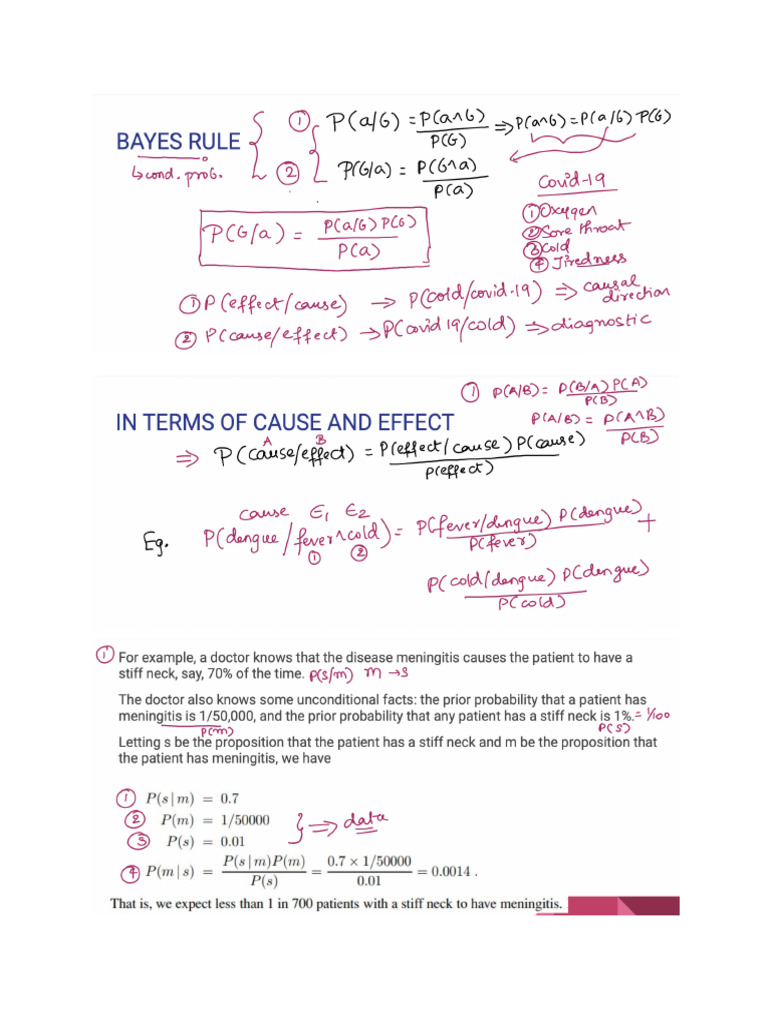 ① P(a/b) = P(a∧b) / P(b) ⇒ P(a∧b) = P(a/b) P(b)
BAYES RULE
↳ cond. prob.
② P(b/a) = P(b∧a) / P(a)
P(b/a) = P(a/b) P(b) / P(a)
Covid-19
① Oxygen
② Sore throat
③ Cold
④ Tiredness
① P(effect/cause) → P(cold/covid-19) ⇒ causal direction
② P(cause/effect) → P(covid 19/cold) ⇒ diagnostic
① P(A/B) = P(B/A) P(A) / P(B)
IN TERMS OF CAUSE AND EFFECT
P(A/B) = P(A∧B) / P(B)
A B
⇒ P(cause/effect) = P(effect/cause) P(cause) / P(effect)
cause E1 E2
Eg. P(dengue/fever∧cold) = P(fever/dengue) P(dengue) / P(fever) +
① ②
P(cold/dengue) P(dengue) / P(cold)
① For example, a doctor knows that the disease meningitis causes the patient to have a
stiff neck, say, 70% of the time. P(s/m) m → s
The doctor also knows some unconditional facts: the prior probability that a patient has
meningitis is 1/50,000, and the prior probability that any patient has a stiff neck is 1%. = 1/100
P(m) P(s)
Letting s be the proposition that the patient has a stiff neck and m be the proposition that
the patient has meningitis, we have
① P(s | m) = 0.7
② P(m) = 1/50000 ⇒ data
③ P(s) = 0.01
④ P(m | s) = P(s | m)P(m) / P(s) = 0.7 × 1/50000 / 0.01 = 0.0014 .
That is, we expect less than 1 in 700 patients with a stiff neck to have meningitis.